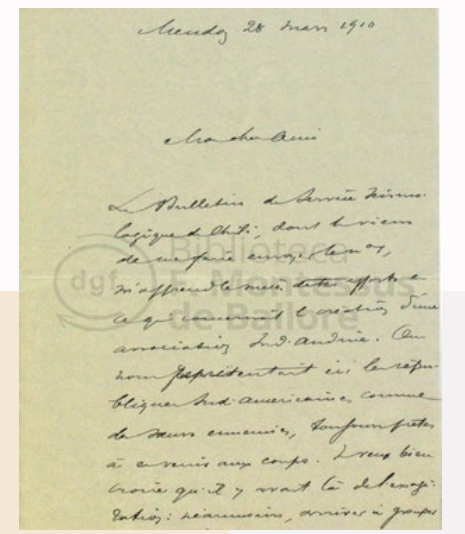 Meudon 28 mars 1910
Mon cher Ami
Le Bulletin du Service Sismo-
logique du Chili, dont tu viens
de me faire envoyer le n°
m'apprend le succès de tes efforts en
ce qui concerne la création d'une
association Sud-Andine. On
nous représentait ici les répu-
bliques Sud-américaines comme
de sœurs ennemies, toujours prêtes
à en venir aux coups. Je veux bien
croire qu'il y avait là de l'exagé-
ration; néanmoins, arriver à grouper
dgf
Biblioteca
F. Montessus
de Ballore